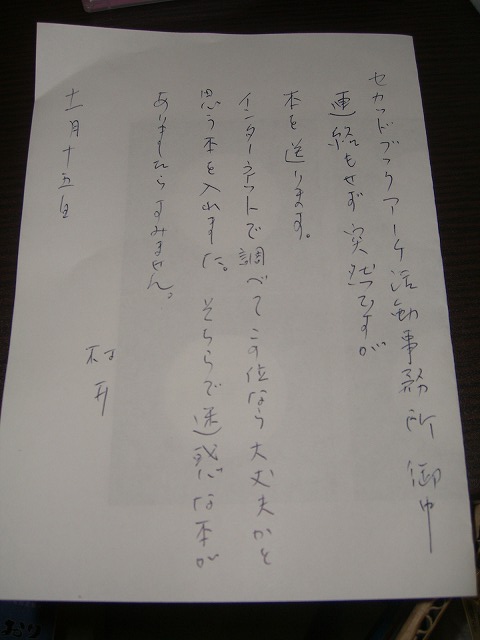 セカンドブックアーチ活動事務所 御中
連絡もせず突然ですが
本を送ります。
インターネットで調べてこの位なら大丈夫かと
思う本を入れました。そちらで迷惑な本が
ありましたらすみません。
十一月十五日
村井